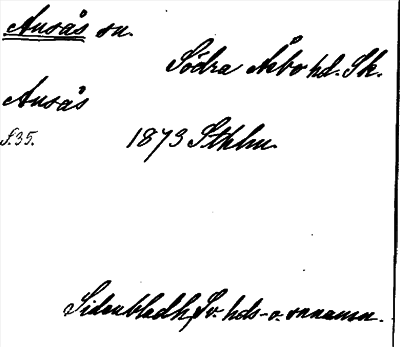 Ausås sn.
Södra Åsbo hd. Sk.
Ausås
S.35. 1873 Sthlm.
Sidenbladh, Sv. hds- o. snnamn.